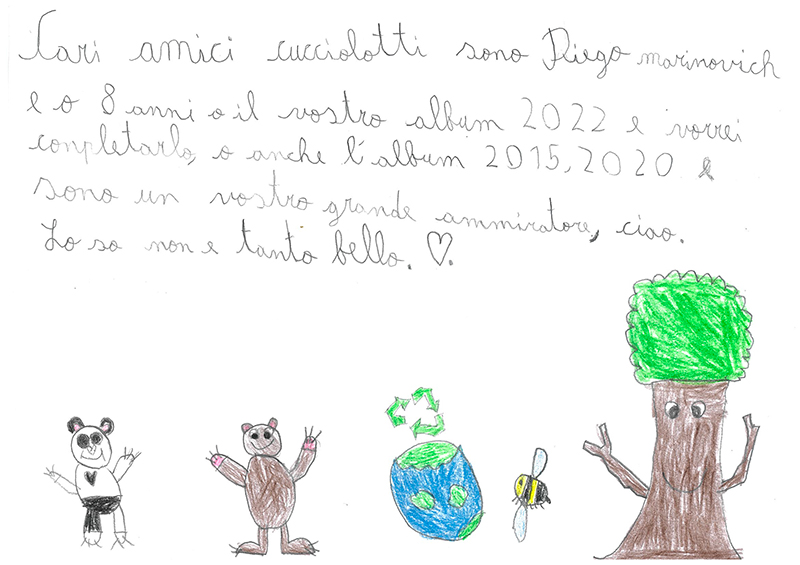 Cari amici cucciolotti sono Diego marinovich
e o 8 anni o il vostro album 2022 e vorrei
conpletarlo, o anche l'album 2015, 2020 e
sono un vostro grande ammiratore, ciao.
Lo so non e tanto bello. ♡.